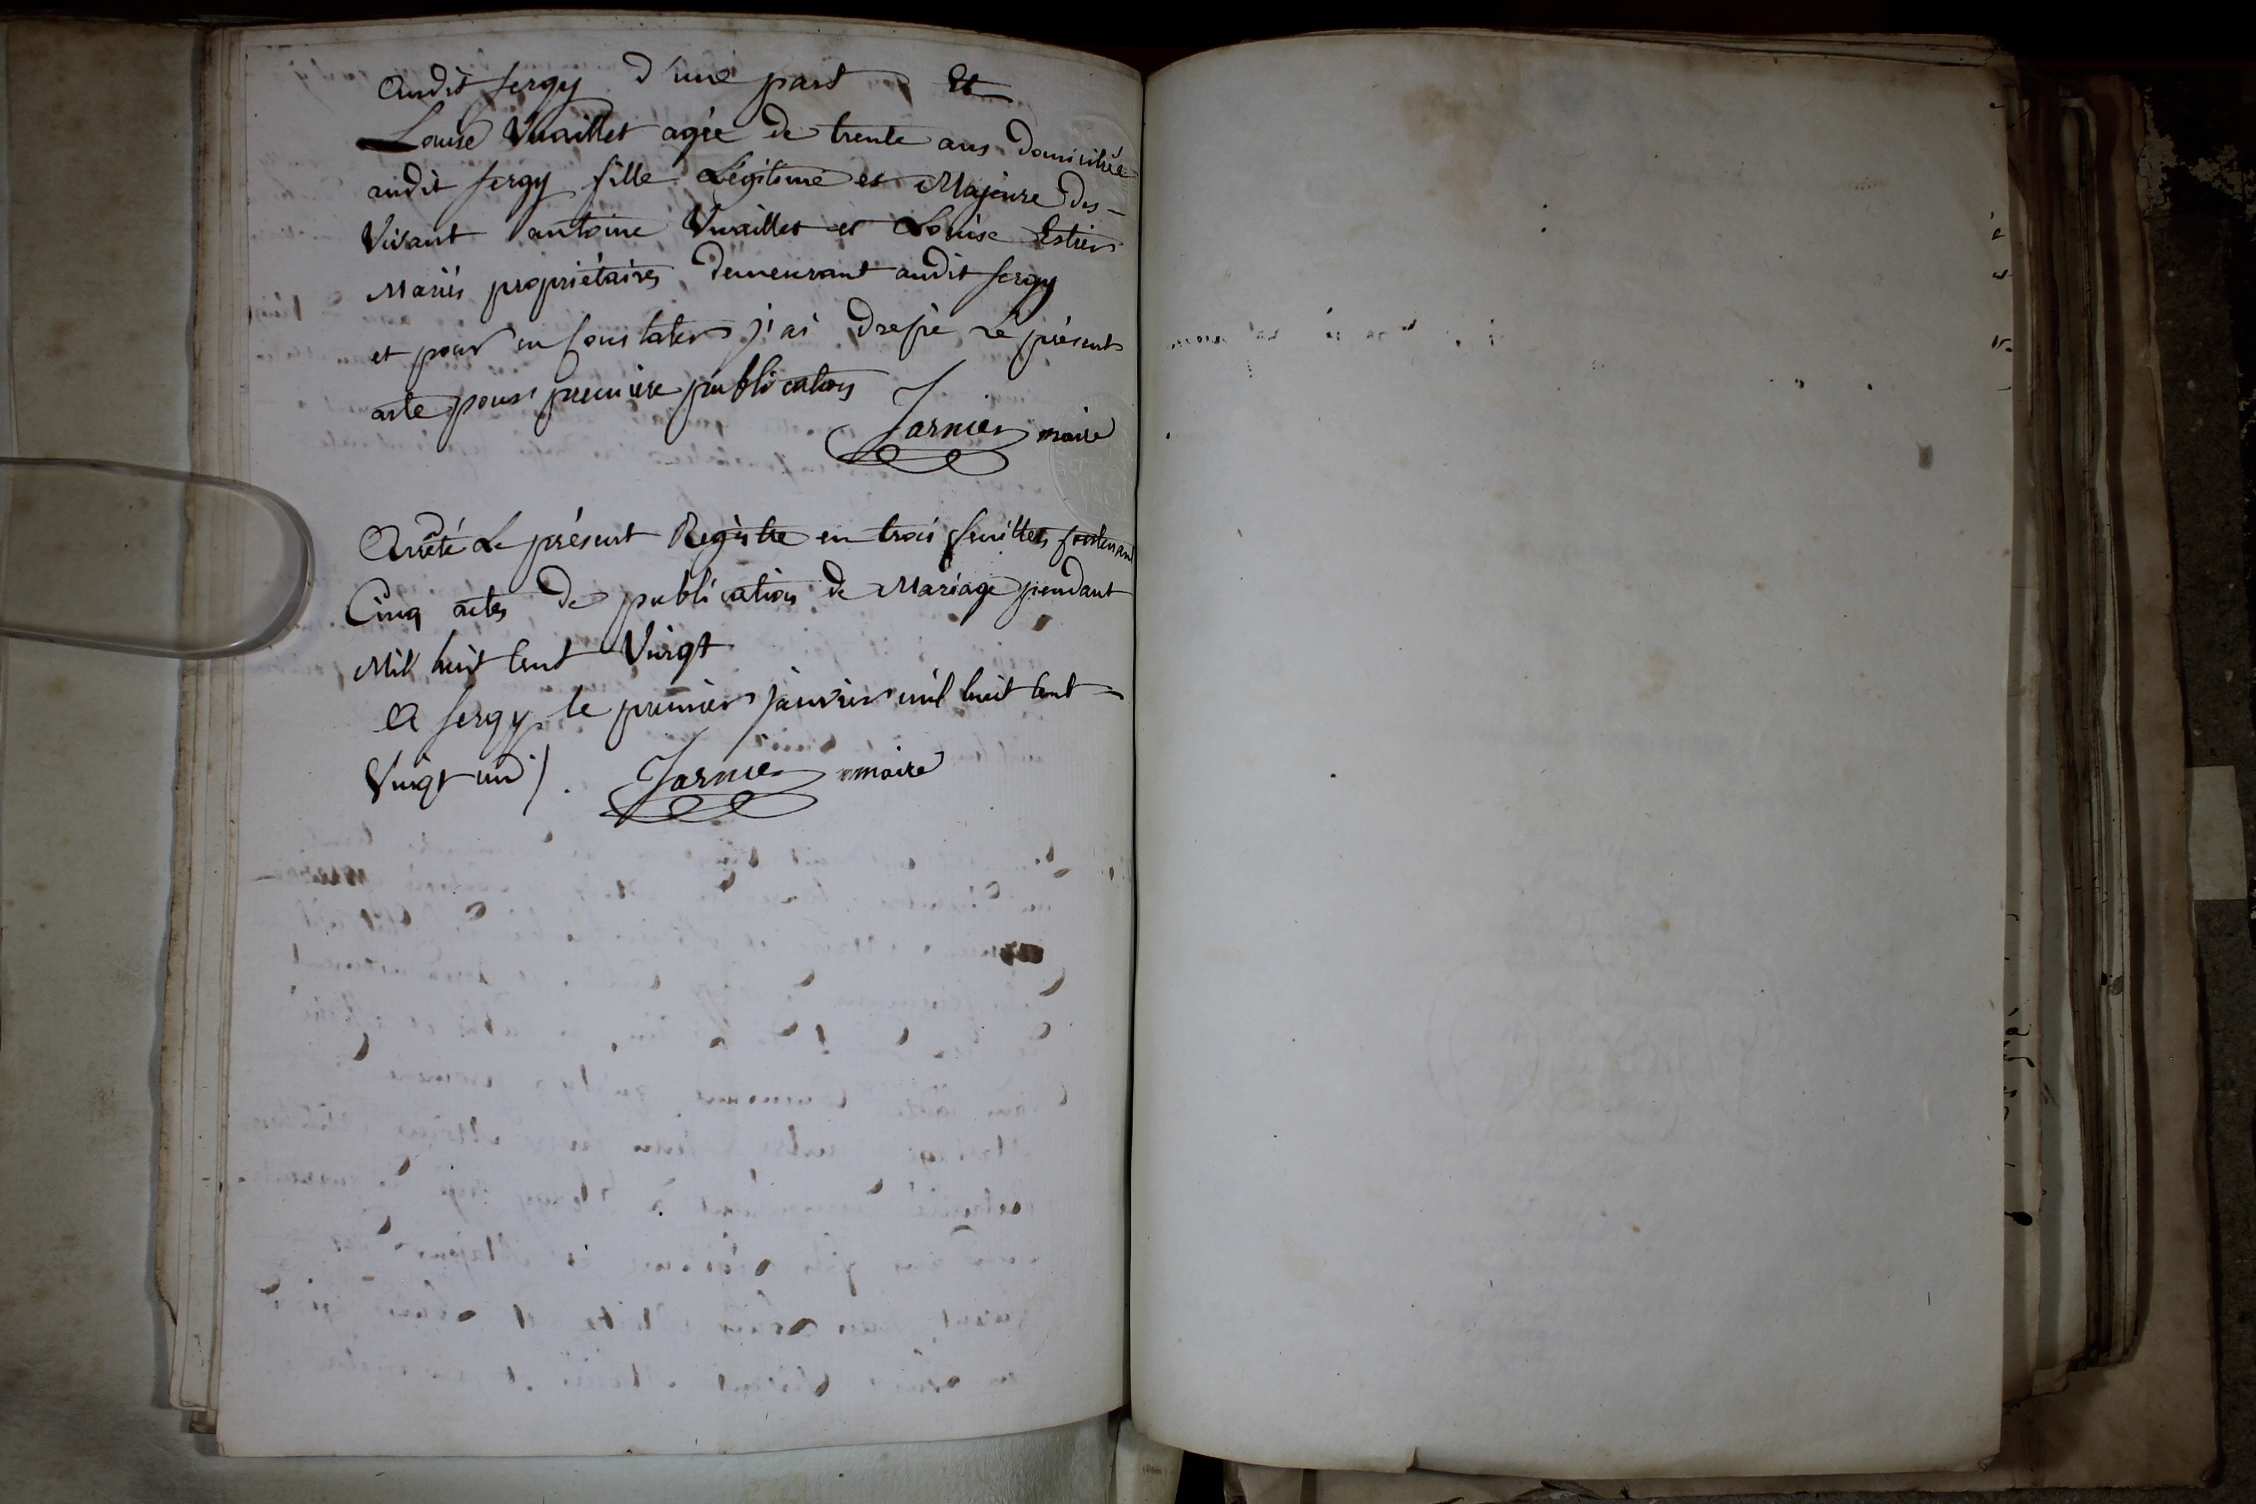 audit sergy d'une part Et
Louise Vuaillet agée de trente ans domiciliée
audit sergy fille Légitime et Majeure des
Vivant antoine Vuaillet et Louise Estier
Mariés propriétaires demeurant audit sergy
et pour en constater j'ai dressé le présent
acte pour premiere publication
Jarnier maire
Arrêté Le présent Registre en trois feuillets contenant
Cinq actes de publication de Mariage pendant
Mil huit cent Vingt
A sergy le premier janvier mil huit cent
Vingt un
Jarnier maire